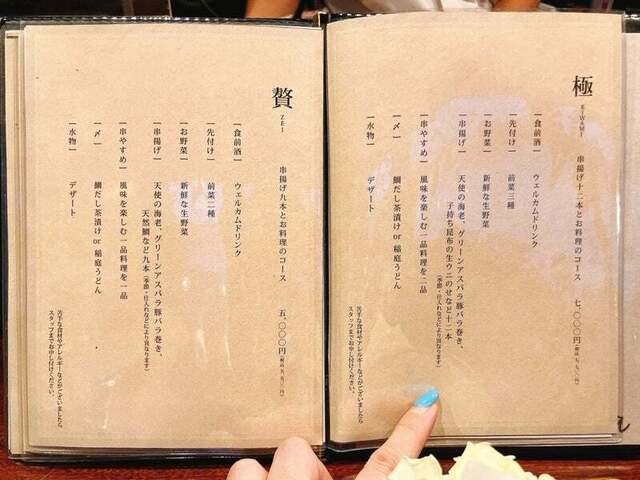 極
KIWAMI
串揚げ十二本とお料理のコース 七、〇〇〇円(税込 七、七〇〇円)
【食前酒】 ウェルカムドリンク
【先付け】 前菜三種
【お野菜】 新鮮な生野菜
【串揚げ】 天使の海老、グリーンアスパラ豚バラ巻き、
子持ち昆布の生ウニのせなど十二本
(季節・仕入れなどにより異なります)
【串やすめ】 風味を楽しむ一品料理を二品
【〆】 鯛だし茶漬け or 稲庭うどん
【水物】 デザート
苦手な食材やアレルギーなどがございましたら
スタッフまでお申し付けください。
贅
ZEI
串揚げ九本とお料理のコース 五、〇〇〇円(税込 五、五〇〇円)
【食前酒】 ウェルカムドリンク
【先付け】 前菜二種
【お野菜】 新鮮な生野菜
【串揚げ】 天使の海老、グリーンアスパラ豚バラ巻き、
天然鯛など九本
(季節・仕入れなどにより異なります)
【串やすめ】 風味を楽しむ一品料理を一品
【〆】 鯛だし茶漬け or 稲庭うどん
【水物】 デザート
苦手な食材やアレルギーなどがございましたら
スタッフまでお申し付けください。